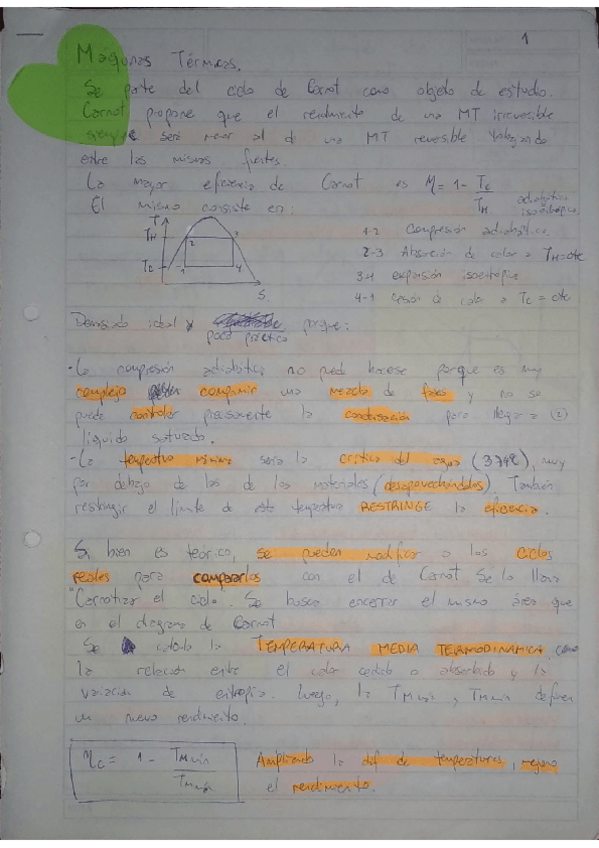 1
Máquinas Térmicas.
Se parte del ciclo de Carnot como objeto de estudio.
Carnot propone que el rendimiento de una MT irreversible
siempre será menor al d una MT reversible trabajando
entre las mismas fuentes.
La mayor eficiencia de Carnot es η = 1 - Tc/TH
El mismo consiste en:
adiabático isoentrópico
T
TH
Tc
2 3
1 4
S
1-2 Compresión adiabática.
2-3 Absorción de calor a TH = cte
3-4 expansión isoentrópica
4-1 cesión de calor a Tc = cte
Demasiado ideal y poco práctico porque:
- La compresión adiabática no puede hacerse porque es muy
complejo comprimir una mezcla de fases y no se
puede controlar precisamente la condensación para llegar a (2)
líquido saturado.
- La temperatura máxima sería la crítica del agua (374°C), muy
por debajo de las de los materiales (desaprovechándolos). También
restringir el límite de esta temperatura RESTRINGE la eficiencia.
Si bien es teórico, se pueden modificar a los ciclos
reales para compararlos con el de Carnot. Se lo llama
"Carnotizar el ciclo. Se busca encerrar el mismo área que
en el diagrama de Carnot
Se calcula la TEMPERATURA MEDIA TERMODINAMICA como
la relación entre el calor cedido o absorbido y la
variación de entropía. Luego, la definen
un nuevo rendimiento.
ηc = 1 -
Ampliando la dif de temperaturas, mejora
el rendimiento.